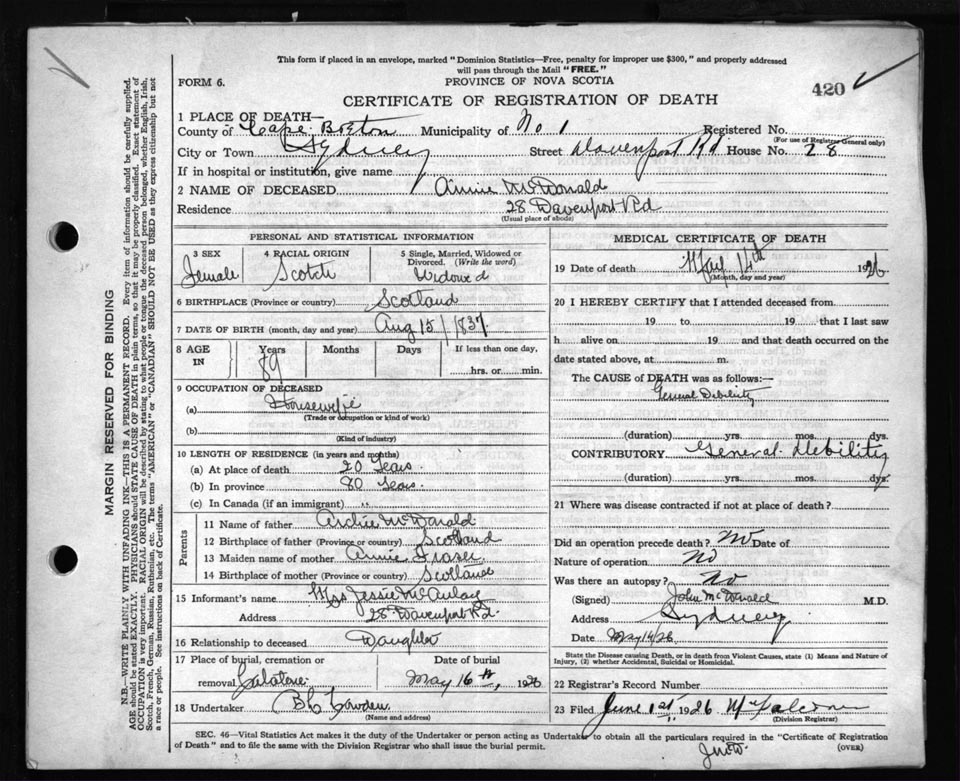 This form if placed in an envelope, marked "Dominion Statistics—Free, penalty for improper use $300," and properly addressed
will pass through the Mail "FREE."
FORM 6.
PROVINCE OF NOVA SCOTIA
420
CERTIFICATE OF REGISTRATION OF DEATH
1 PLACE OF DEATH—
County of Cape Breton Municipality of No 1 Registered No.
(For use of Registrar General only)
City or Town Sydney Street Davenport Rd House No. 28
If in hospital or institution, give name
2 NAME OF DECEASED Annie McDonald
Residence 28 Davenport Rd
(Usual place of abode)
PERSONAL AND STATISTICAL INFORMATION
3 SEX Female
4 RACIAL ORIGIN Scotch
5 Single, Married, Widowed or Divorced. (Write the word) Widowed
6 BIRTHPLACE (Province or country) Scotland
7 DATE OF BIRTH (month, day and year) Aug 15/1837
8 AGE IN Years 89 Months Days If less than one day, hrs. or min.
9 OCCUPATION OF DECEASED
(a) Housewife
(Trade or occupation or kind of work)
(b)
(Kind of industry)
10 LENGTH OF RESIDENCE (in years and months)
(a) At place of death 20 Years
(b) In province 80 Years
(c) In Canada (if an immigrant) "
Parents
11 Name of father Archie McDonald
12 Birthplace of father (Province or country) Scotland
13 Maiden name of mother Annie Fraser
14 Birthplace of mother (Province or country) Scotland
15 Informant's name Mrs Jessie McAulay
Address 28 Davenport Rd.
16 Relationship to deceased Daughter
17 Place of burial, cremation or removal Date of burial
May 16th, 1926
18 Undertaker
(Name and address)
MEDICAL CERTIFICATE OF DEATH
19 Date of death May 14th 1926
(Month, day and year)
20 I HEREBY CERTIFY that I attended deceased from
19 to 19 that I last saw
h alive on 19 and that death occurred on the
date stated above, at m.
The CAUSE of DEATH was as follows:—
General Debility
(duration) yrs. mos. dys.
CONTRIBUTORY General Debility
(duration) yrs. mos. dys.
21 Where was disease contracted if not at place of death?
Did an operation precede death? No Date of
Nature of operation No
Was there an autopsy? No
(Signed) John McDonald M.D.
Address Sydney
Date May 14/26
State the Disease causing Death, or in death from Violent Causes, state (1) Means and Nature of
Injury, (2) whether Accidental, Suicidal or Homicidal.
22 Registrar's Record Number
23 Filed June 1st 1926
(Division Registrar)
SEC. 46—Vital Statistics Act makes it the duty of the Undertaker or person acting as Undertaker to obtain all the particulars required in the "Certificate of Registration
of Death" and to file the same with the Division Registrar who shall issue the burial permit.
(OVER)
MARGIN RESERVED FOR BINDING
N.B.—WRITE PLAINLY WITH UNFADING INK—THIS IS A PERMANENT RECORD. Every item of information should be carefully supplied.
AGE should be stated EXACTLY. PHYSICIANS should STATE CAUSE OF DEATH in plain terms, so that it may be properly classified. Exact statement of
OCCUPATION is very important. RACIAL ORIGIN will be described by stating to what people or tongue the deceased person belonged, whether English, Irish,
Scotch, French, German, Russian, Ruthenian, etc. The terms "AMERICAN" or "CANADIAN" SHOULD NOT BE USED as they express citizenship but not
a race or people. See instructions on back of Certificate.